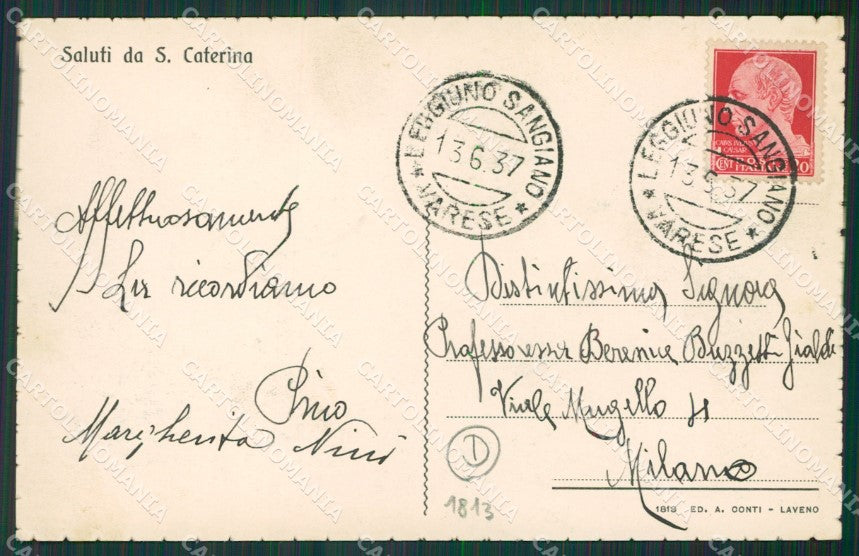 Saluti da S. Caterina
LEGGIUNO SANGIANO
13.6.37
* VARESE *
LEGGIUNO SANGIANO
13.6.37
* VARESE *
CENT
Affettuosamente
La ricordiamo
Pino
Margherita Nini
Distintissima Signora
Professoressa Berenice Buzzetti
Viale Mugello
Milano
D
1813
1813 ED. A. CONTI - LAVENO
CARTOLINOMANIA